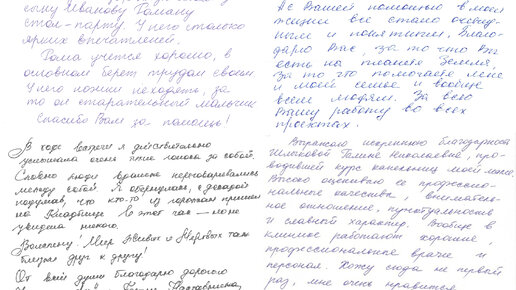 сыну Иванову Роману
стол-парту. У него столько
ярких впечатлений.
Рома учится хорошо, в
основном берет трудом своим
У него ложки не хватать, за
то он старательный мальчик
Спасибо Вам за помощь!
С Вашей помощью в моей
жизни всё стало очевид-
ным и понятным. Благо-
дарю Вас, за то что Вы
есть на планете Земля,
За то что помогаете мне
и моей семье и вообще
всем людям. За всю
Вашу работу во всех
проектах.
В ходе встречи я действительно
услышала очень тихие голоса за собой.
Словно люди вдалеке переговаривались
между собой. Я обернулась, с досадой
подумав, что кто-то из горожан пришел
на Кладбище. В этот час — но не
увидела никого.
Воистину! Мир Живых и Мёртвых так
близки друг к другу!
От всей души благодарю дорогого
Выражаю искреннюю благодарность
Галине Николаевне, про-
водившей курс капельниц моей маме.
Высоко оцениваю её профессио-
нальные качества, вниматель-
ное отношение, пунктуальность
и славный характер. Вообще в
клинике работают хорошие,
профессиональные врачи и
персонал. Хожу сюда не первый
раз, мне очень нравится